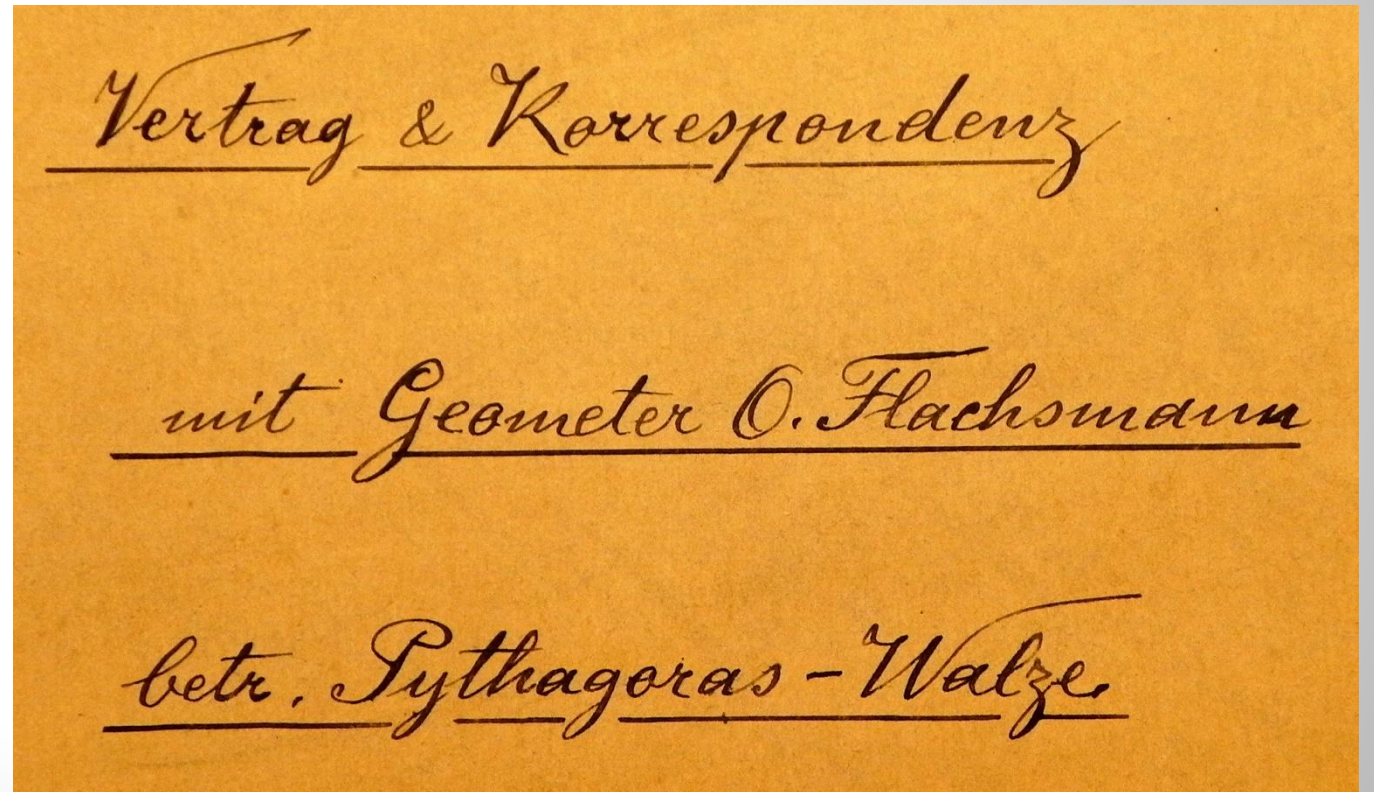 Vertrag & Korrespondenz
mit Geometer O. Flachsmann
betr. Pythagoras-Walze.